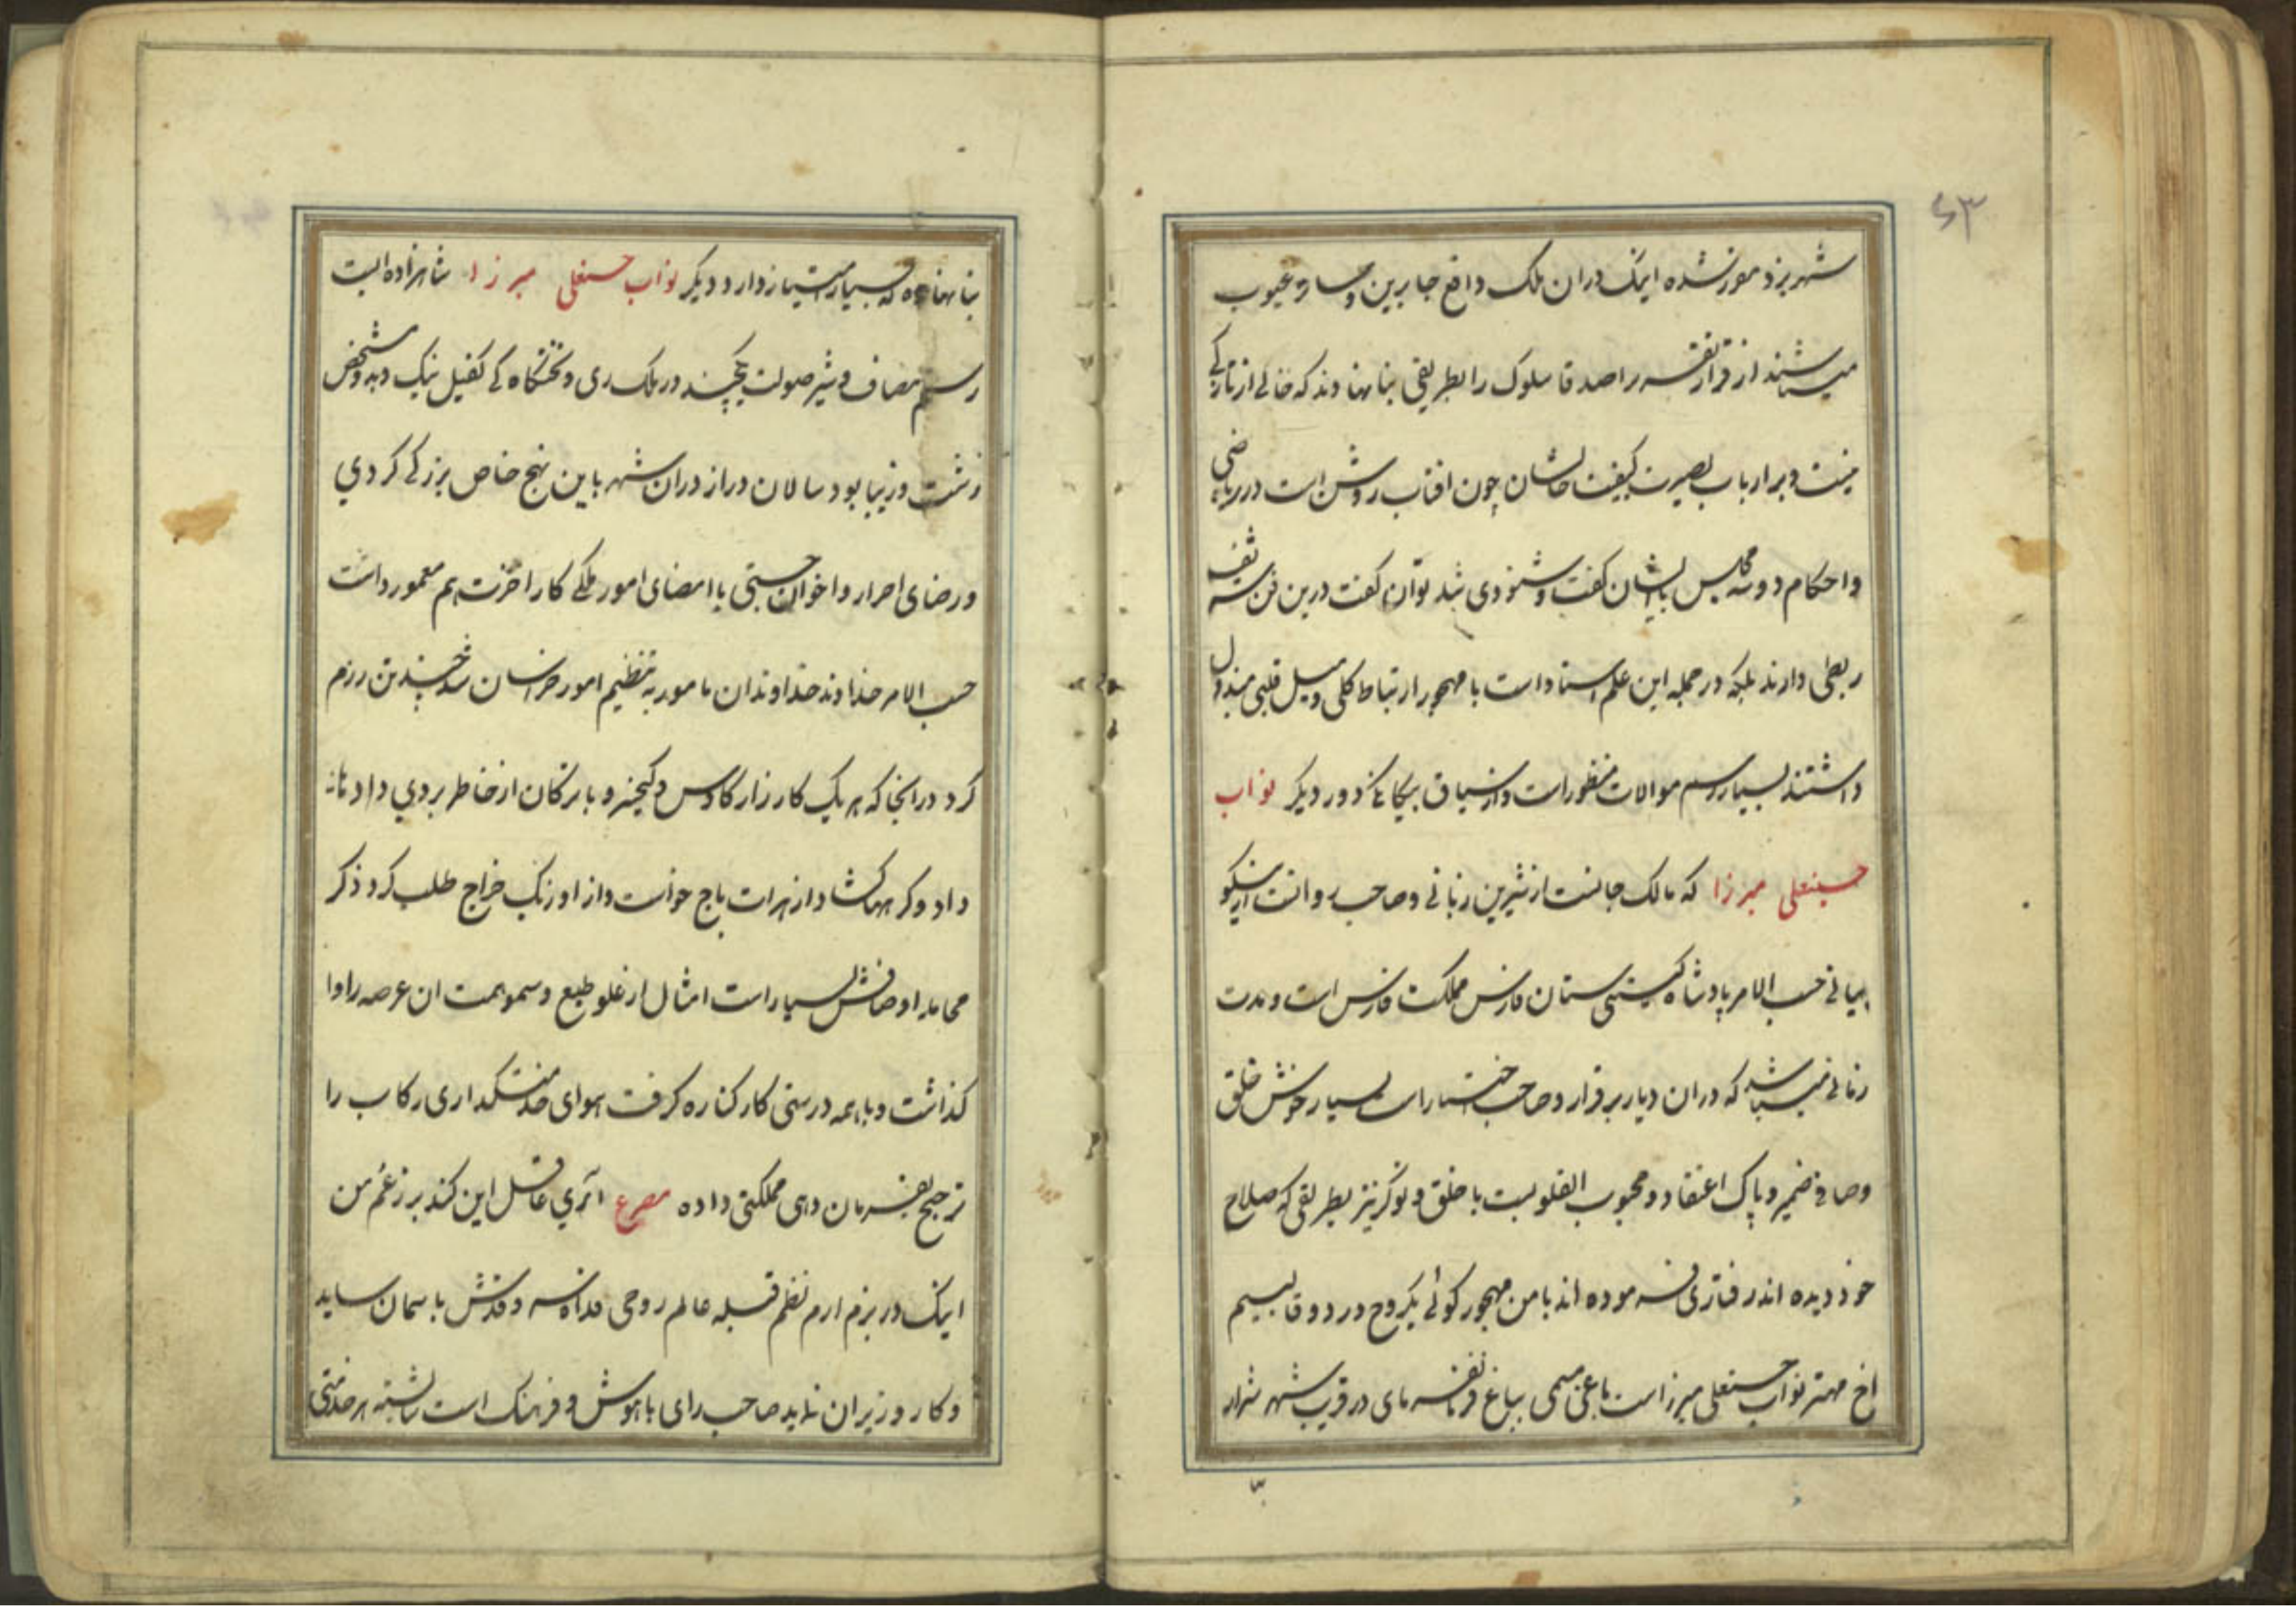 ۶۳
شهر یزد مورد شده اینک دران ملک دافع جابرین و ساتر عیوب
میباشند از قرار تقریر اصدقا سلوک را بطریقی بنا نهادوند که خالی از نازکی
نیست و بر ارباب بصیرت کیفیت حالشان چون افتاب روشن است در ریاضی
واحکام دو سه مجلس با ایشان گفت و شنودی شد توان گفت درین فن شریف
ربطی دارند بلکه در جمله این علم استاد است با مهجور ارتباط کلی و میل قلبی مبذول
داشتند بسیار رسم موالات منظور است و از سیاق بیگانگی دور دیگر نواب
حسینعلی میرزا که مالک جانست از شیرین زبانی و صاحب روانست از نیکو
بیانی حسب الامر پادشاه گیتی ستان فارس مملکت فارس است و مدت
زمانی میباشد که دران دیار برقرار و صاحب اختیار است بسیار خوش خلق
وصافی ضمیر و پاک اعتقاد و محبوب القلوبست با خلق و نوکر نیز بطریقی که صلاح
خود دیده اند رفتاری فرموده اند با من مهجور گوئی یکروح در دو قالبیم
اخ مهتر نواب حسنعلی میرزاست باغی مسمی بباغ در قرب شهر شیراز
بنا نهاده که بسیار امتیاز دارد و دیگر نواب حسنعلی میرزا شاهزاده ایست
رستم مصاف و شیر صولت یکچند در ملک ری و تختگاه کی کفیل نیک و بد و مشخص
زشت و زیبا بود سالان دراز دران شهر باین نهج خاص بزرگی کردی
ورضای احرار و اخوان جستی با امضای امور ملکی کار اخرت هم معمور داشت
حسب الامر خداوند خداوندان مامور به تنظیم امور خراسان شد چندین رزم
کرد درانجا که هر یک کارزار کاوس و کیخسرو با ترکان از خاطر بردی داد
داد و گرهها گشاد از هرات باج خواست و از اورنگ خراج طلب کرد ذکر
محامد اوصافش بسیار است امثال از غلو طبع و سمو همت ان عرصه را وا
گذاشت و با همه درستی کار کناره گرفت هوای خدمتکداری رکاب را
ترجیح بفرمان دهی مملکتی داده مصرع آری عاقل این کند بر زعم من
اینک در بزم ارم نظم قبله عالم روحی فداه فرقدش باسمان ساید
و کار وزیران نماید صاحب رای با هوش و فرهنگ است شایسته هر خدمتی